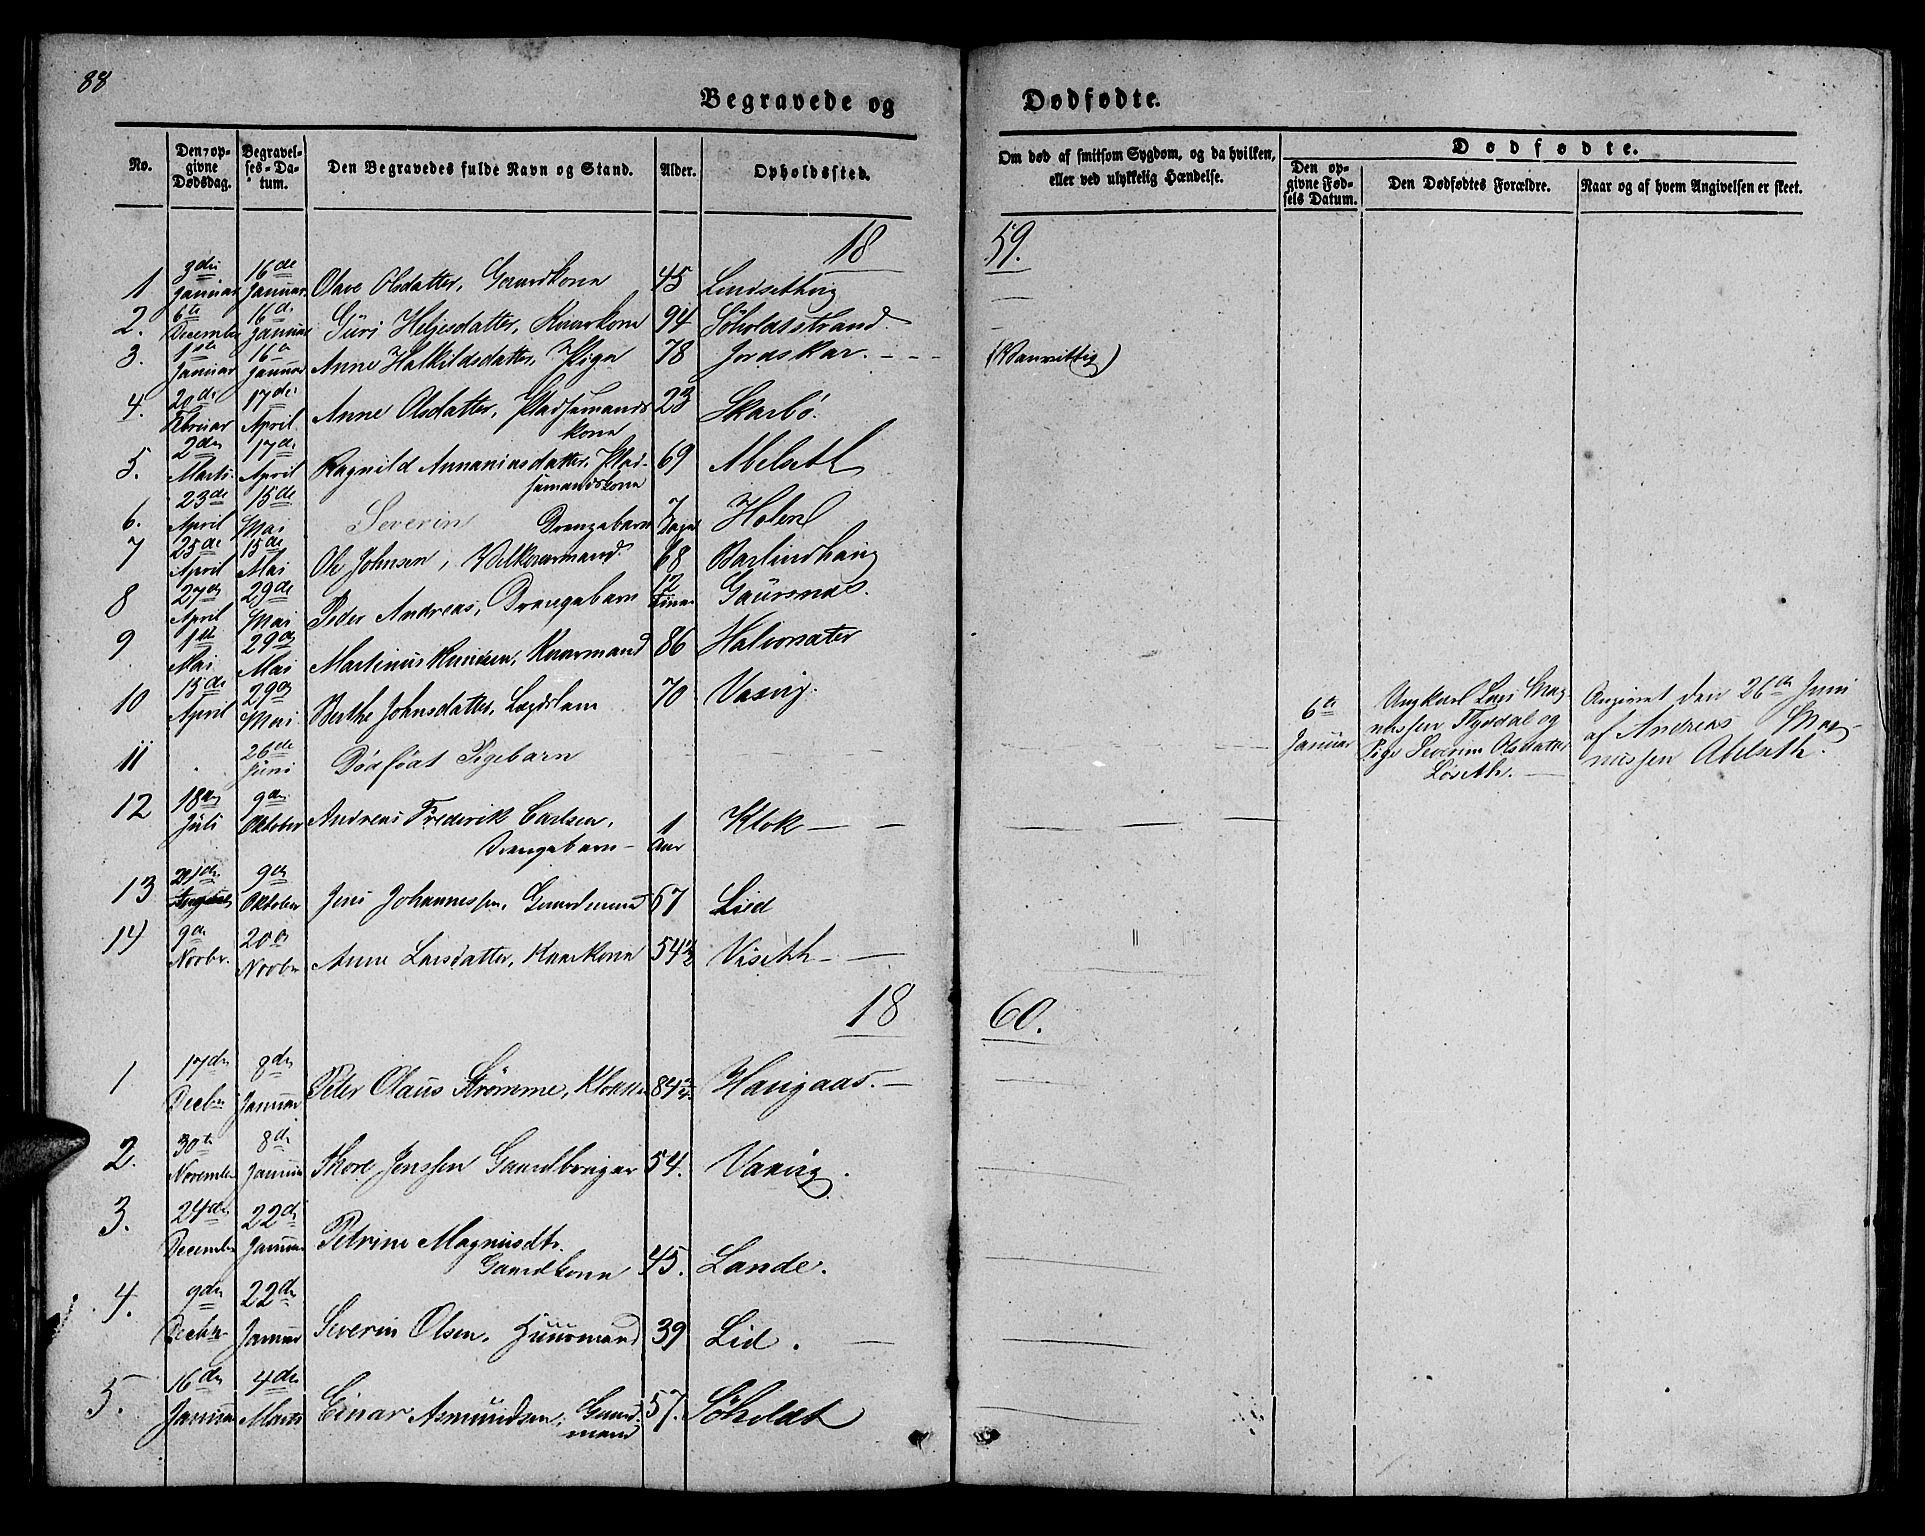 88
Begravede og Dødfødte.
No. Den opgivne Dødsdag. Begravelses-Datum. Den Begravedes fulde Navn og Stand. Alder. Opholdssted. Om død af smitsom Sygdom, og da hvilken, eller ved ulykkelig Hændelse. Dødfødte. Den opgivne Fødsels Datum. Den Dødfødtes Forældre. Naar og af hvem Angivelsen er skeet.
18 59.
1 3die Januar 16de Januar Olave Olsdatter, Gaardkone 45
2. 6te December 16de Januar Güri Heljesdatter, Kaarkone 94 Søholdtstrand.
3. 1ste Januar 16de Januar Anne Halkildsdatter, Pige 78 Jordskar. (Vanvittig)
4. 20de Februar 17de April Anne Olsdatter, Pladsemandskone 23 Skarbø.
5. 2den Marts 17de April Ragnild Annaniasdatter, Pladsemandskone 69 Abelseth
6. 23de April 15de Mai Severin Drengebarn 7 Dage Holen
7 25de April 15de Mai Ole Johnsen, Vilkaarmand 68 Barlindhaug
8 27de April 29de Mai Peder Andreas, Drengebarn 12 Timer Gaürsnæs.
9 1ste Mai 29de Mai Martinus Knudsen, Kaarmand 86 Halvorsæter
10 15de April 29de Mai Berthe Johnsdatter, Lægdslem 70 Vaxvig.
11 26de Juni Dødfødt Pigebarn 6te Januar Ungkarl Lars Magnussen Flydal og Pige Severine Olsdatter Løseth. Angivet den 26de Juni af Andreas Magnussen Abelseth.
12 18de Juli 9de Oktober Andreas Frederik Carlsen, Drengebarn 1 Aar Klok
13 21de August 9de Oktober Jens Johannessen, Gaardmand 67 Lied
14 9de Novbr. 20de Novbr Anne Larsdatter, Kaarkone 54½ Viseth
18 60.
1 17de Decbr 8de Januar Peter Olaus Strømme, Klokker Haugaas.
2. 30te November 8de Januar Thore Jenssen Gaardbruger 54. Vaxvig.
3. 24de December 22de Januar Petrine Magnusdtr. Gaardkone 45. Lande.
4. 9de Decbr 22de Januar Severin Olsen, Huusmand 39 Lid.
5. 16de Januar 4de Marts Einar Asmundsen, Gaardmand 57. Søholdt